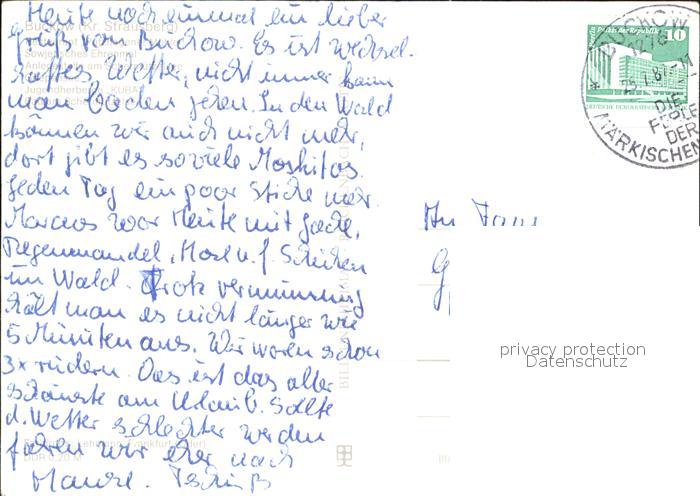 Heute noch einmal ein lieber
Gruß von Buckow. Es ist wechsel-
haftes Wetter, nicht immer kann
man baden gehen. In den Wald
können wir auch nicht mehr,
dort gibt es so viele Moskitos.
Jeden Tag ein paar Stiche mehr.
Marcus war Heute mit Jacke,
Regenmandel, Hose u. f. Schuhen
im Wald. Trotz vermummung
hält man es nicht länger wie
5 Minuten aus. Wir waren schon
3x rudern. Das ist das aller
schönste am Urlaub. Sollte
d. Wetter schlechter werden
fahren wir eher nach
Hause. Tschüß
Buckow (Kr. Strausberg)
Sowjetisches Ehrenmal
Jugendherberge "KUBA"
DDR 0,20 M
Palast der Republik 10
DEUTSCHE DEMOKRATISCHE
BUCKOW
1276
DIE
PERLE
DER
MÄRKISCHEN
An Fam
G
privacy protection
Datenschutz